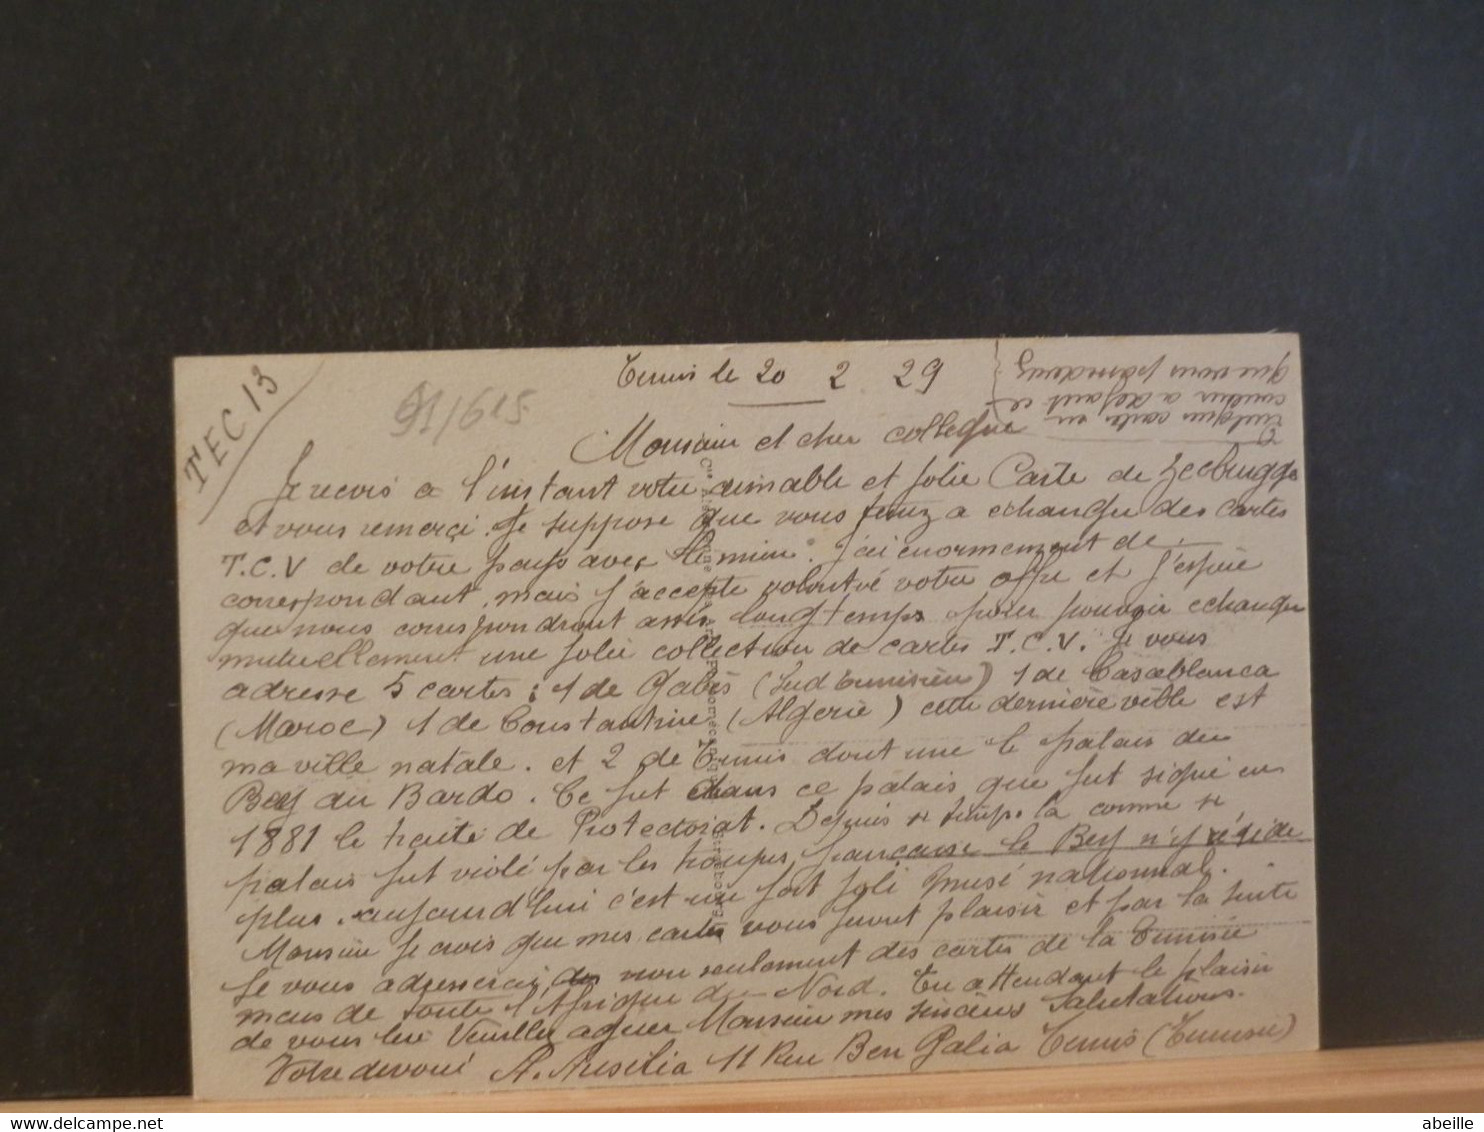 TEC 13
91/615
Tunis le 20 2 29
Quelques cartes en
couleur à défaut ce
que vous possedez
Monsieur et cher collègue
Je reçois a l'instant votre aimable et jolie Carte de Zeebrugge
et vous remerçi. Je suppose que vous ferez a echanger des cartes
T.C.V de votre pays avec le mien. J'ai enormement de
correspondant, mais j'accepte volontié votre offre et j'espère
que nous correspondront assez longtemps pour pouvoir echanger
mutuellement une jolie collection de cartes T.C.V. Je vous
adresse 5 cartes: 1 de Gabès (Sud Tunisien) 1 de Casablanca
(Maroc) 1 de Constantine (Algerie) cette dernière ville est
ma ville natale. et 2 de Tunis dont une le palais du
Bey au Bardo. Ce fut dans ce palais que fut signé en
1881 le traité de Protectorat. Depuis ce temps la comme ce
palais fut violé par les troupes française le Bey n'y réside
plus. aujourd'hui c'est un fort joli musé national.
Monsieur Je crois que mes cartes vous feront plaisir et par la suite
Je vous adresserai non seulement des cartes de la Tunisie
mais de toute l'Afrique du Nord. En attendant le plaisir
de vous lire Veuillez agreer Monsieur mes sincères Salutations.
Votre devoué A. Ausilia 11 Rue Ben Galia Tunis (Tunisie)
abeille